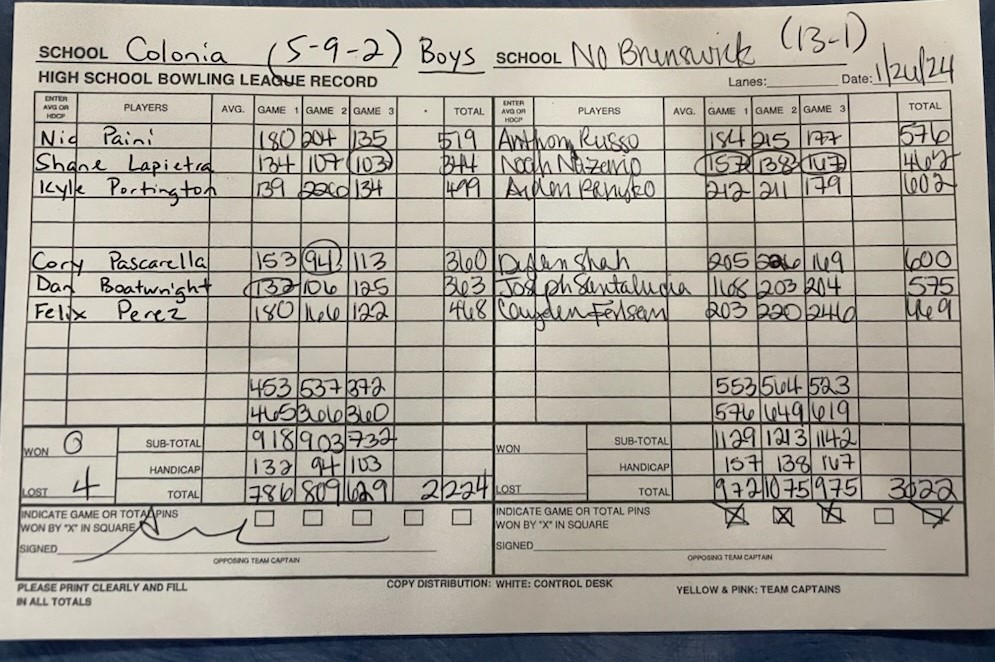 SCHOOL Colonia (5-9-2) Boys SCHOOL No Brunswick (13-1)
HIGH SCHOOL BOWLING LEAGUE RECORD Lanes: Date: 1/24/24
ENTER AVG OR HDCP PLAYERS AVG. GAME 1 GAME 2 GAME 3 TOTAL ENTER AVG OR HDCP PLAYERS AVG. GAME 1 GAME 2 GAME 3 TOTAL
Nic Paini 180 204 135 519 Anthony Russo 184 215 177 576
Shane Lapietra 134 107 103 344 Noah Nazario 157 138 167 462
Kyle Portington 139 226 134 499 Aiden 212 211 179 602
Cory Pascarella 153 94 113 360 Dylan Shah 205 226 169 600
Dan Boatwright 132 106 125 363 Joseph Santalucia 168 203 204 575
Felix Perez 180 166 122 468 Cayden 203 220 246 469
453 537 372 553 564 523
465 366 360 576 649 619
WON 0 SUB-TOTAL 918 903 732 WON SUB-TOTAL 1129 1213 1142
HANDICAP 132 94 103 HANDICAP 157 138 167
LOST 4 TOTAL 786 809 629 2224 LOST TOTAL 972 1075 975 3022
INDICATE GAME OR TOTAL PINS INDICATE GAME OR TOTAL PINS
WON BY "X" IN SQUARE WON BY "X" IN SQUARE
SIGNED SIGNED
OPPOSING TEAM CAPTAIN OPPOSING TEAM CAPTAIN
PLEASE PRINT CLEARLY AND FILL COPY DISTRIBUTION: WHITE: CONTROL DESK YELLOW & PINK: TEAM CAPTAINS
IN ALL TOTALS